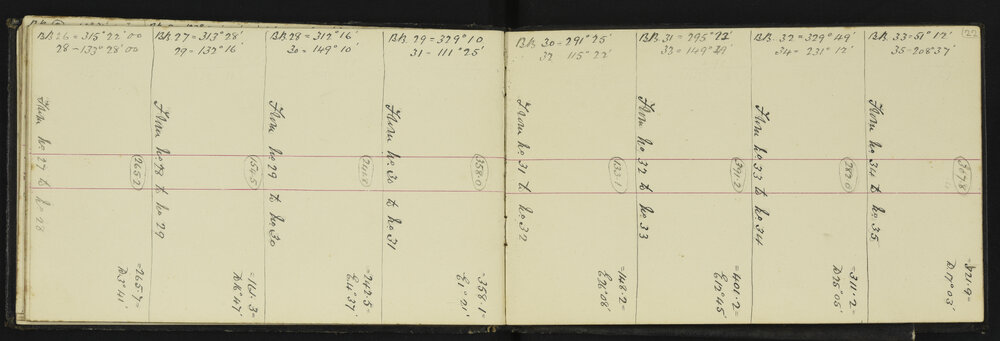 Bk. 26 = 315° 22' 00
28 - 133° 28' 00
From No 27 to No 28
265.2
= 265.7 =
D. 3° 41'
Bk 27 = 313° 28'
29 - 132° 16'
From No 28 to No 29
= 161.3 =
47'
Bk 28 = 312° 16'
30 = 149° 10'
From No 29 to No 30
= 242.5 =
E 4° 37'
Bk. 29 = 329° 10
31 - 111° 25'
From No. 30 to No. 31
358.0
= 358.1 =
E 1° 21'
Bk. 30 = 291° 25'
32 115° 22'
From No 31 to No 32
Bk. 31 = 295° 22'
33 = 149° 49'
From No 32 to No 33
= 148.2 =
08'
Bk. 32 = 329° 49'
34 = 231° 12'
From No 33 to No 34
391.2
= 401.2 =
E 12° 45'
Bk. 33 = 51° 12'
35 = 208° 37'
From No 34 to No 35
282.0
= 311.2 =
D 25° 05'
22
307.8
= 321.9 =
D. 17° 03'